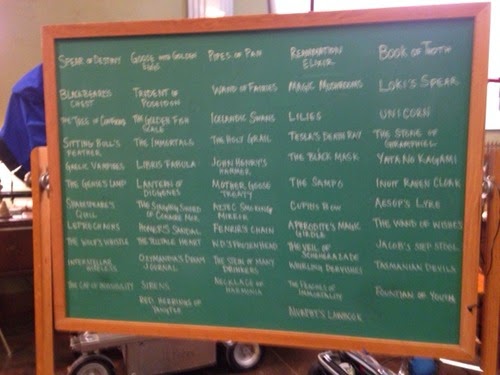 Spear of Destiny
Goose with Golden
Eggs
Pipes of Pan
Reanimation
Elixir
Book of Thoth
Blackbeard's
Chest
Trident of
Poseidon
Wand of Fairies
Magic Mushrooms
Loki's Spear
The Tree of
The Golden Fish
Scale
Icelandic Swans
Lilies
Unicorn
Sitting Bull's
Feather
The Immortals
The Holy Grail
Tesla's Death Ray
The Stone of
Garlic Vampires
Libris Fabula
John Henry's
Hammer
The Black Mask
Yata No Kagami
The Genie's Lamp
Lantern of
Diogenes
Mother Goose
Treaty
The Sampo
Inuit Raven Cloak
Shakespeare's
Quill
The Singing Sword
of Conaire Mor
Aztec Smoking
Mirror
Cupid's Bow
Aesop's Lyre
Leprechauns
Homer's Sandal
Fenrir's Chain
Aphrodite's Magic
Girdle
The Wand of Wishes
The Wolf's Whistle
The Telltale Heart
The Veil of
Scheherazade
Jacob's Step Stool
Interstellar
Wireless
Oxymandia's Dream
Journal
The Stein of Many
Drinkers
Whirling Dervishes
Tasmanian Devils
The Cap of Invisibility
Sirens
Necklace of
Harmonia
The Peaches of
Immortality
Fountian of Youth
Red Herrings of
Murphy's Lawbook